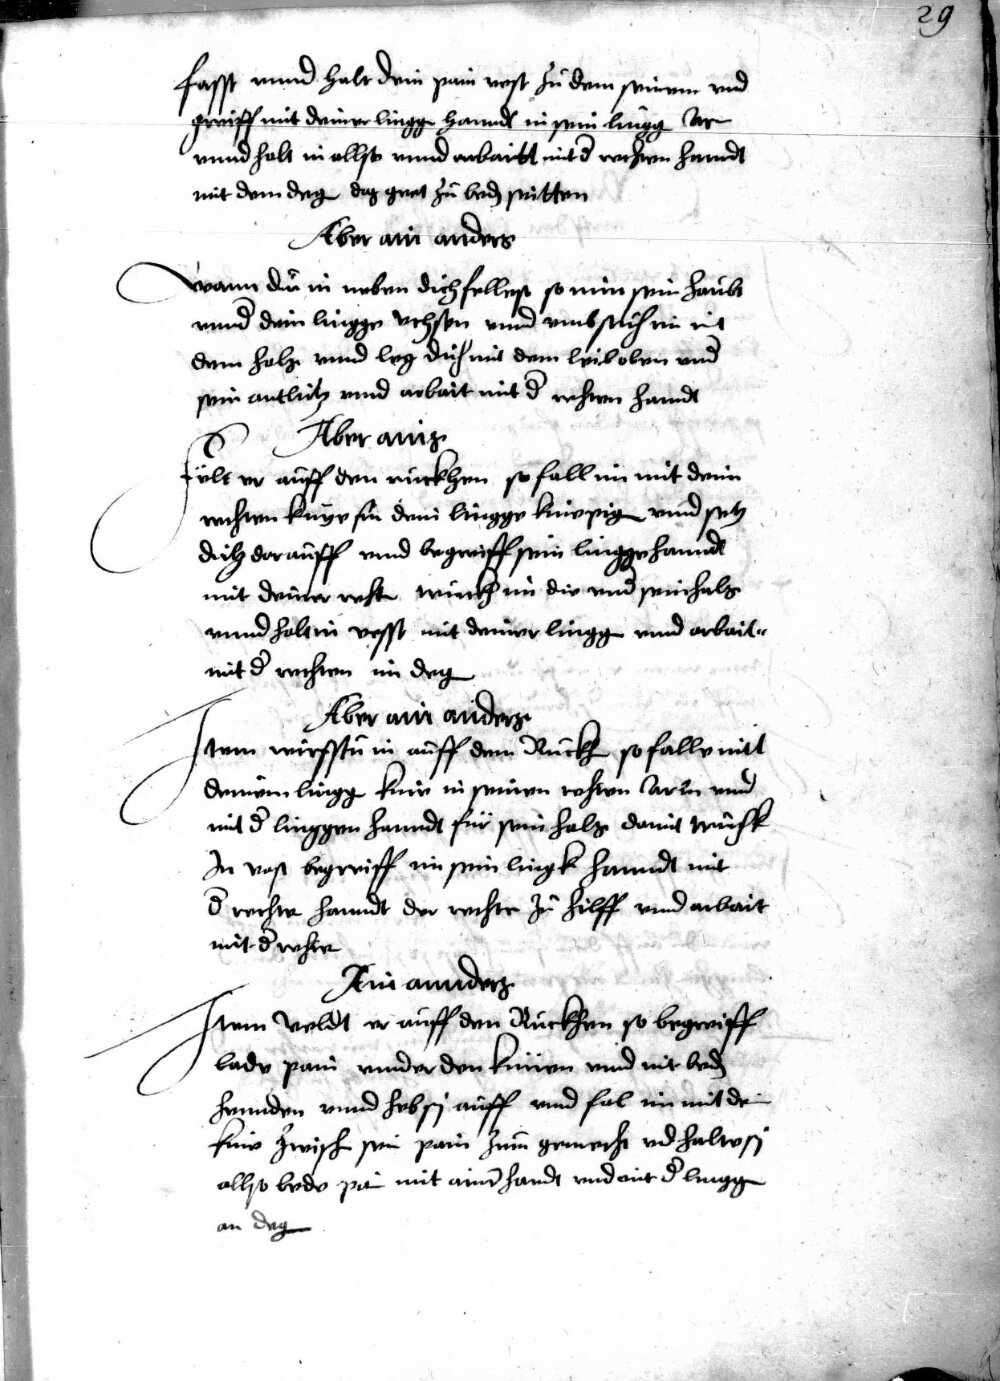 29
fasst vnnd halt dein pain vest zu dem seinem vnd
greiff mit deiner lingg hanndt in sein lingg Ar
vnnd halt in allso vnnd arbaitt mit d rechten hanndt
mit dem deg daz geet zu bed seitten
Aber ain anders
wann du in neben dich fellest so nim sein haubt
vnnd dein lingge Vchsen vnnd vmbslich in mit
dem halz vnnd leg dich mit dem leib oben vnd
sein antlitz vnnd arbait mit d rechten hanndt
Aber ainz
felt er auff den ruckhen so fall im mit dein
rechten knye in dein lingge kniepig vnnd setz
dich darauff vnnd begreiff sein lingge hanndt
mit deiner recht truckh im die vnd sein halz
vnnd halt in vesst mit deiner lingg vnnd arbait
mit d rechten im deg
Aber ain anderz
Item wurfstu in auff dem Ruckh so falle mitt
deinem lingg knie in seinen rechten Arm vnnd
mit d linggen hanndt für sein halz damit truckh
In vast begreiff im sein lingk hanndt mit
d rechte hanndt der rechte zu hilff vnnd arbait
mit d rechte
Ain annderz
Item Veldt er auff den Ruckhen so begreiff
bade pain vnnder den knüen vnnd mit bed
hennden vnnd heb sy auff vnnd fal im mit dein
knie zwisch sein pain zum gemecht vnd halt sy
allso bede pai mit ainer handt vnd mit d lingg
an deg